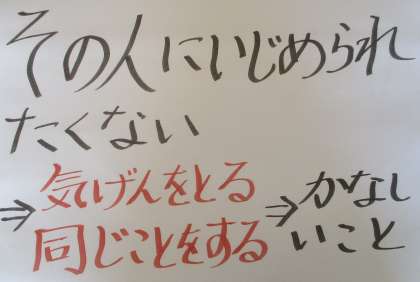 その人にいじめられ
たくない
⇒気げんをとる
同じことをする
⇒かなし
いこと